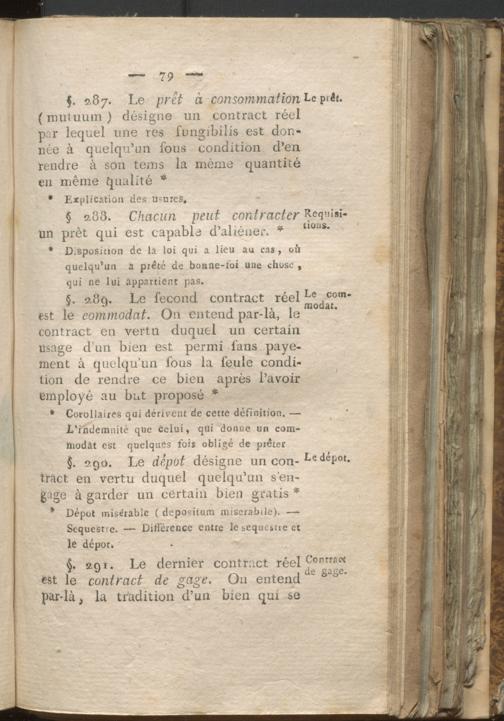 — 79 —
§. 287. Le prêt à consommation Le prêt.
( mutuum ) désigne un contract réel
par lequel une res fungibilis est don-
née à quelqu'un sous condition d'en
rendre à son tems la même quantité
en même qualité *
* Explication des usures.
§ 288. Chacun peut contracter Requisi-
un prêt qui est capable d'aliéner. * tions.
* Disposition de la loi qui a lieu au cas, où
quelqu'un a prêté de bonne-foi une chose,
qui ne lui appartient pas.
§. 289. Le second contract réel Le com-
est le commodat. On entend par-là, le modat.
contract en vertu duquel un certain
usage d'un bien est permi sans paye-
ment à quelqu'un sous la seule condi-
tion de rendre ce bien après l'avoir
employé au but proposé *
* Corollaires qui dérivent de cette définition. —
L'indemnité que celui, qui donne un com-
modat est quelques fois obligé de prêter
§. 290. Le dépot désigne un con- Le dépot.
tract en vertu duquel quelqu'un s'en-
gage à garder un certain bien gratis *
* Dépot misérable ( depositum miserabile). —
Sequestre. — Différence entre le sequestre et
le dépor.
§. 291. Le dernier contract réel Contract
est le contract de gage. On entend de gage.
par-là, la tradition d'un bien qui se